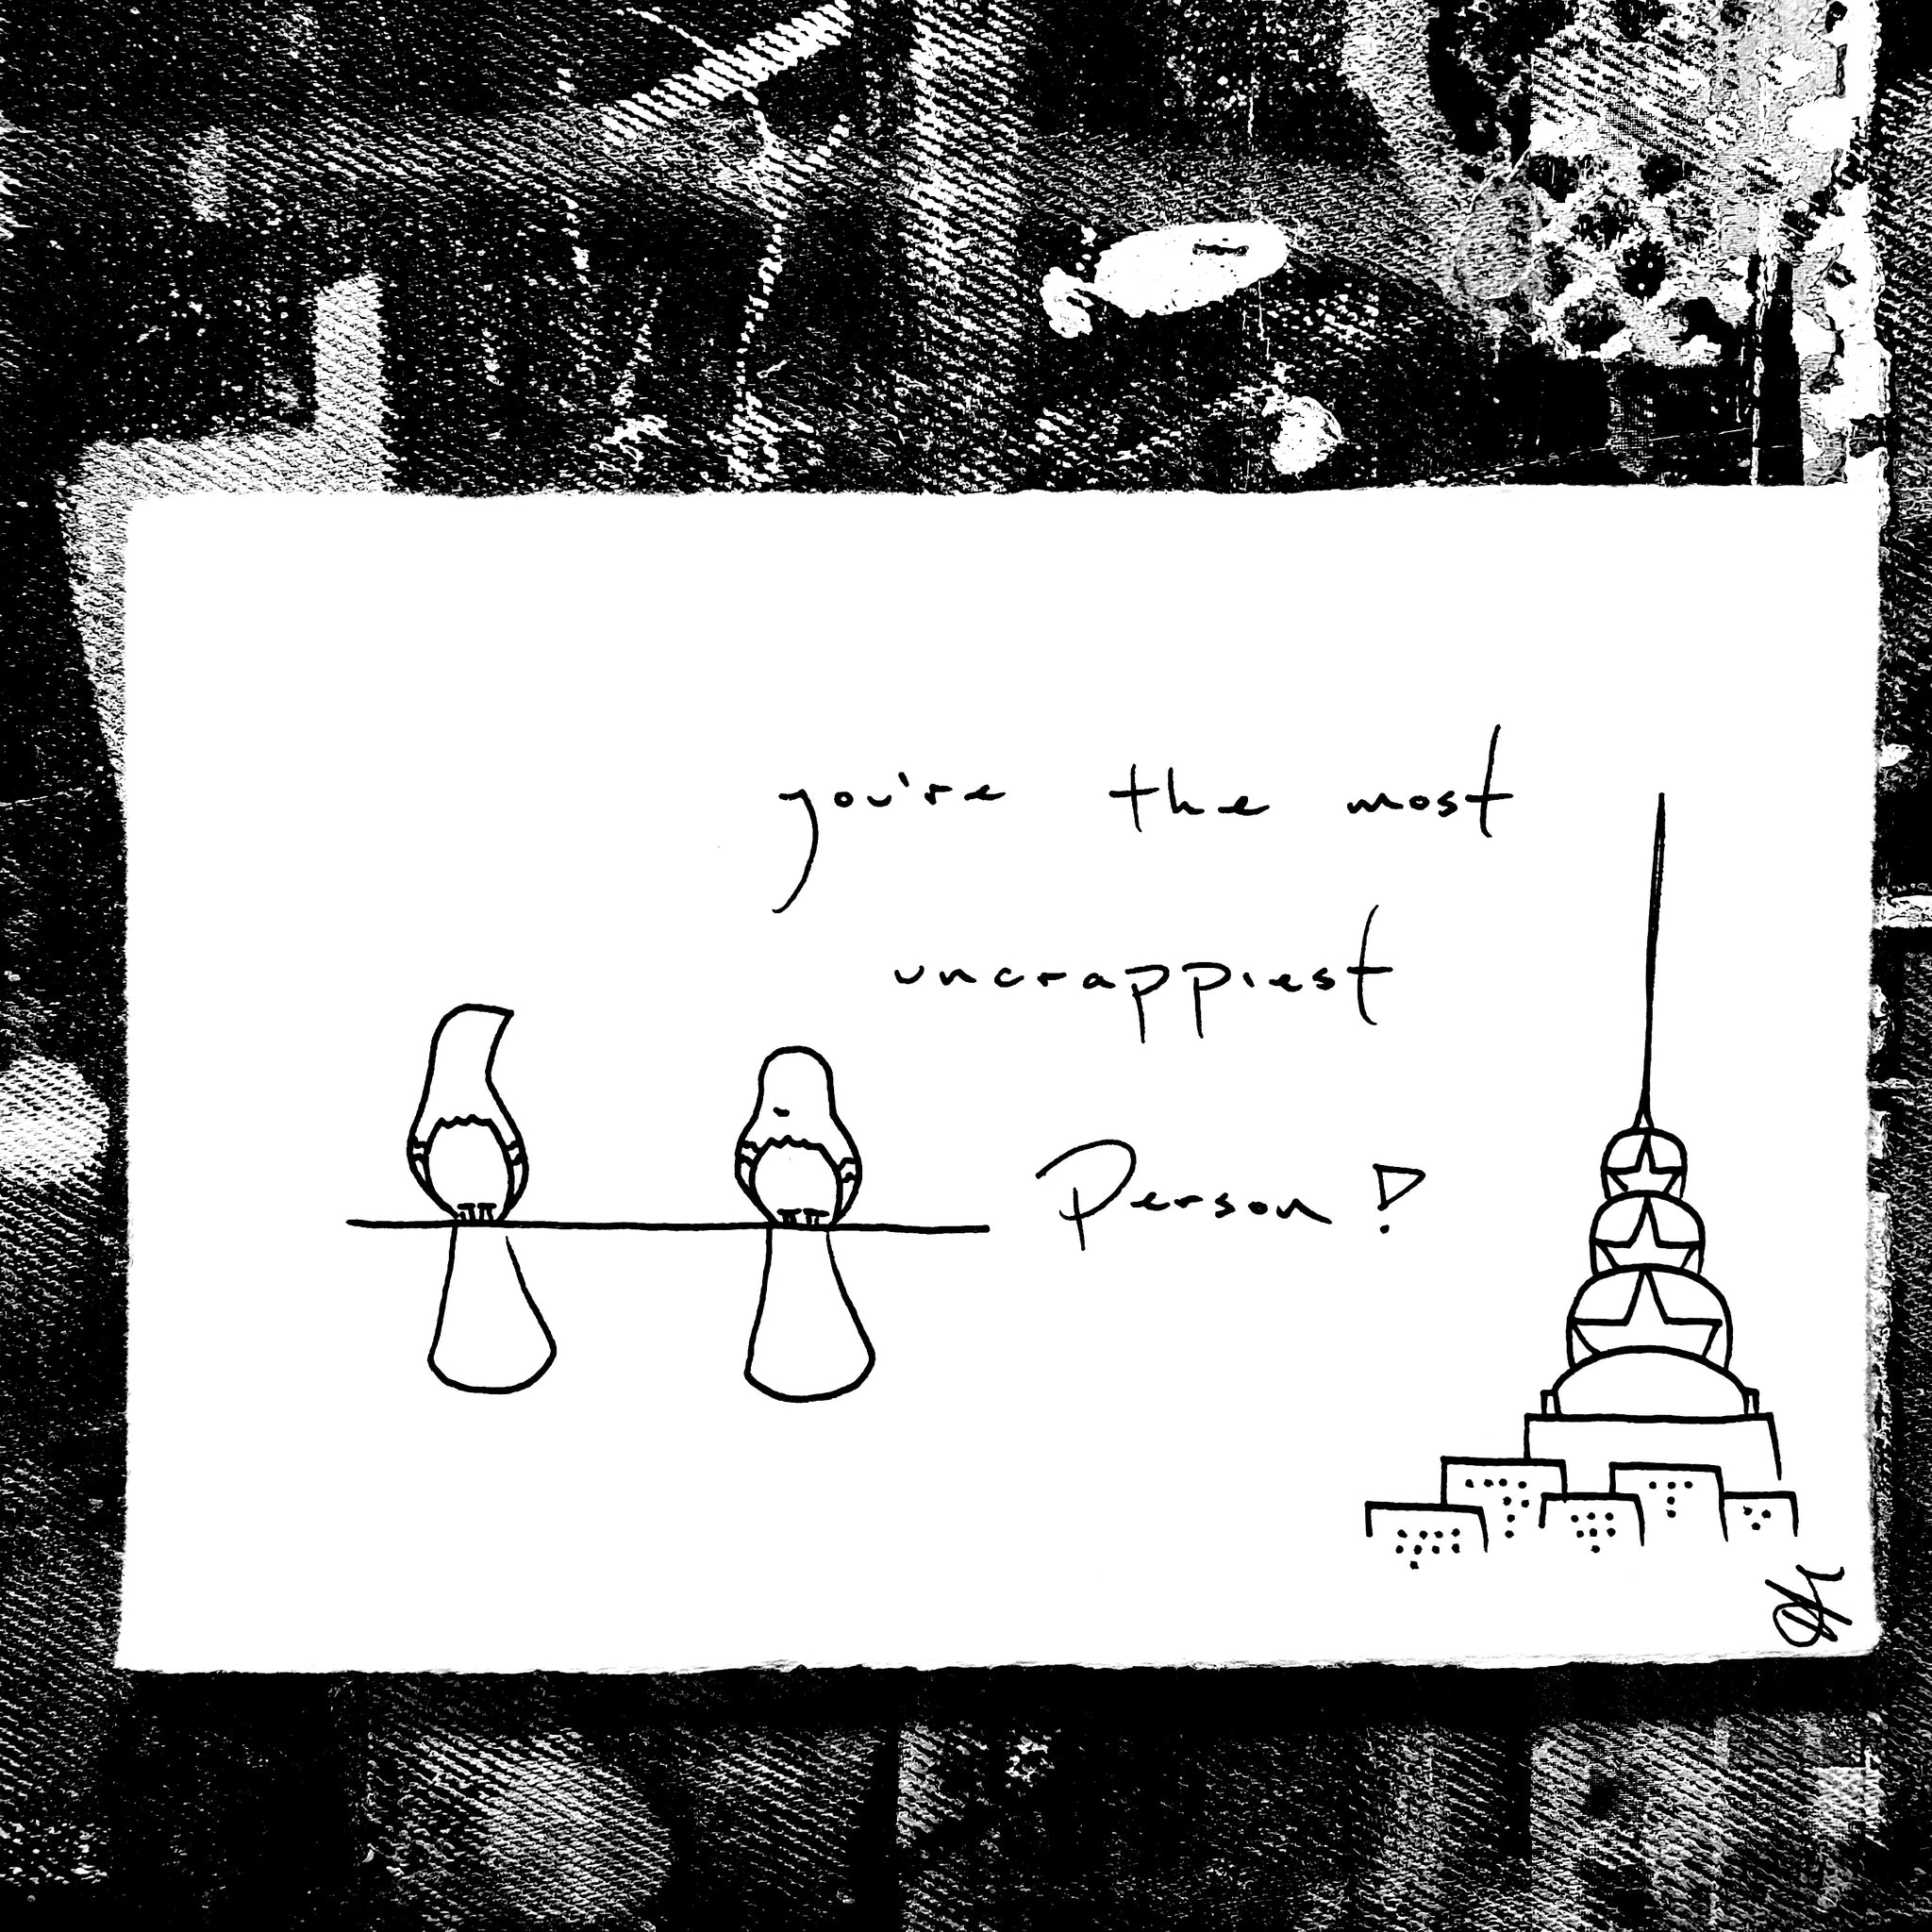 you're the most
uncrappiest
Person!